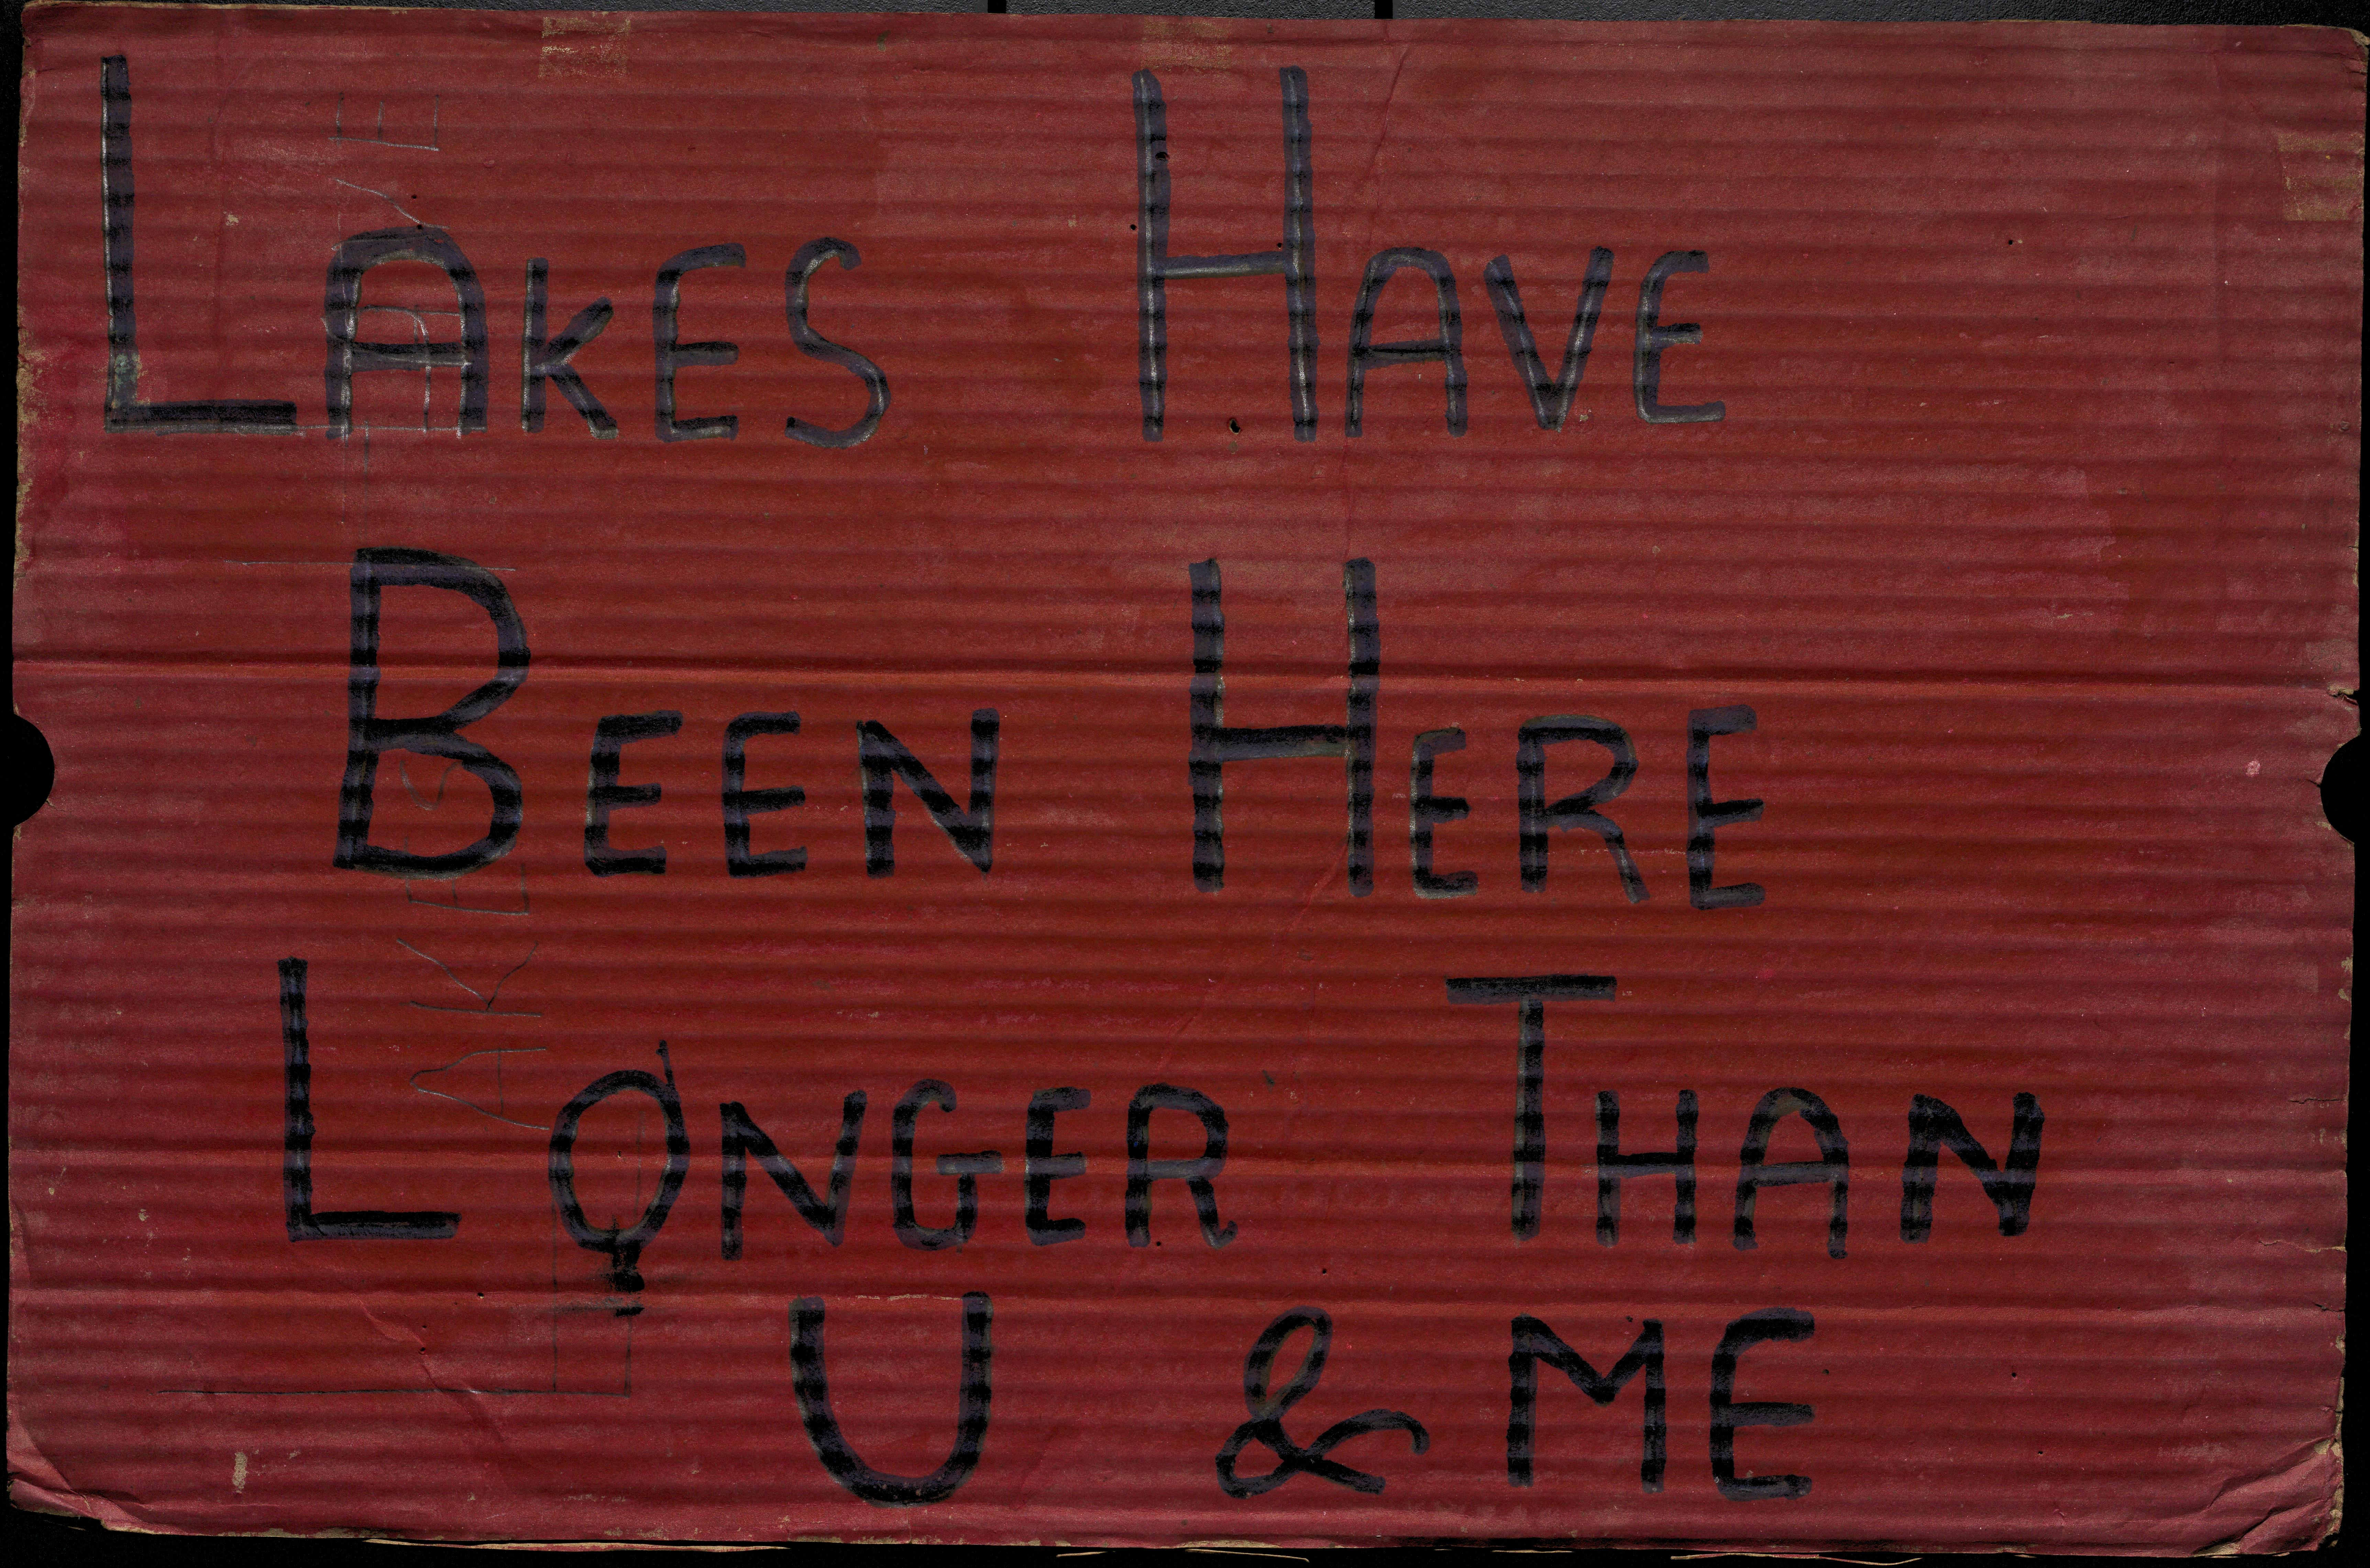 LAKES HAVE
BEEN HERE
LONGER THAN
U & ME